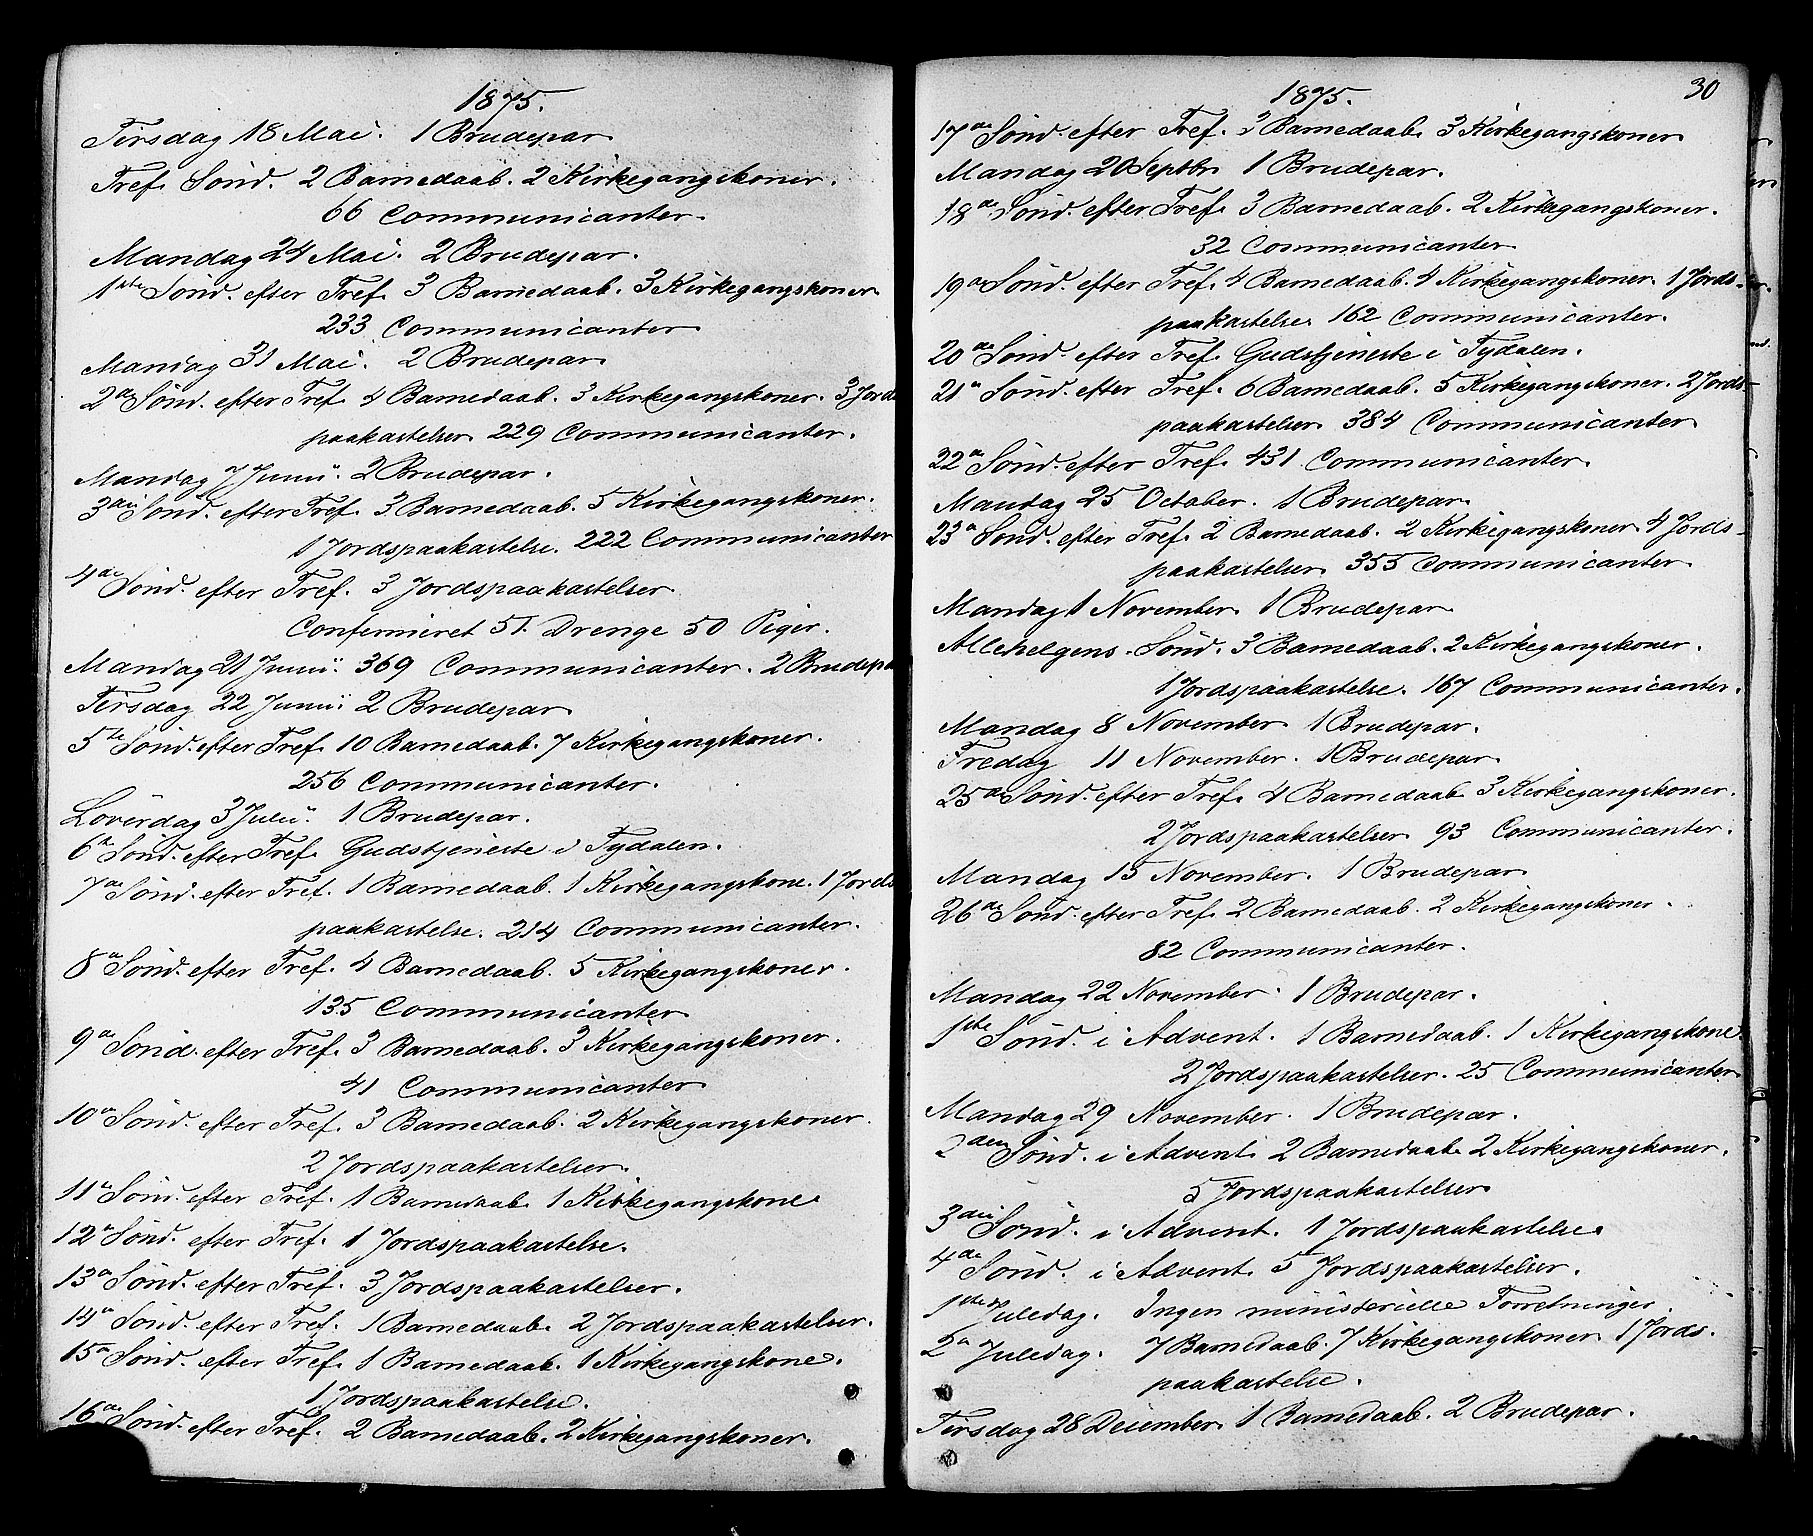 1875.
Tirsdag 18 Mai. 1 Brudepar
Tref. Sönd. 2 Barnedaab. 2 Kirkegangskoner.
66 Communicanter.
Mandag 24 Mai. 2 Brudepar.
1ste Sönd. efter Tref. 3 Barnedaab. 3 Kirkegangskoner.
233 Communicanter
Mandag 31 Mai. 2 Brudepar.
2den Sönd. efter Tref. 4 Barnedaab. 3 Kirkegangskoner. 3 Jords
paakastelser. 229 Communicanter.
Mandag 7 Junii. 2 Brudepar.
3die Sönd. efter Tref. 3 Barnedaab. 5 Kirkegangskoner.
1 Jordspaakastelse. 222 Communicanter
4de Sönd. efter Tref. 3 Jordspaakastelser
Confermieret 51. Drenge 50 Piger.
Mandag 21 Junii. 369 Communicanter. 2 Brudepar
Tirsdag 22 Junii 2 Brudepar
5te Sönd. efter Tref. 10 Barnedaab. 7 Kirkegangskoner.
256 Communicanter.
Löverdag 3 Julii. 1 Brudepar.
6te Sönd. efter Tref. Gudstjeneste i Tydalen.
7de Sönd. efter Tref. 1 Barnedaab. 1 Kirkegangskone. 1 Jords
paakastelse. 214 Communicanter.
8de Sönd. efter Tref. 4 Barnedaab. 5 Kirkegangskoner.
135 Communicanter
9de Sönd. efter Tref. 3 Barnedaab. 3 Kirkegangskoner.
41 Communicanter
10de Sönd. efter Tref. 3 Barnedaab. 2 Kirkegangskoner.
2 Jordspaakastelser.
11te Sönd. efter Tref. 1 Barnedaab. 1 Kirkegangskone
12te Sönd. efter Tref. 1 Jordspaakastelse.
13de Sönd. efter Tref. 3 Jordspaakastelser.
14de Sönd. efter Tref. 1 Barnedaab. 2 Jordspaakastelser.
15de Sönd. efter Tref. 1 Barnedaab. 1 Kirkegangskone.
1 Jordspaakastelse.
16de Sönd. efter Tref. 2 Barnedaab. 2 Kirkegangskoner.
30
1875.
17de Sönd. efter Tref. 3 Barnedaab. 3 Kirkegangskoner
Mandag 20 Septbr. 1 Brudepar.
18de Sönd. efter Tref. 3 Barnedaab. 2 Kirkegangskoner.
32 Communicanter
19de Sönd. efter Tref. 4 Barnedaab. 4 Kirkegangskoner. 1 Jords-
paakastelse. 162 Communicanter.
20de Sönd. efter Tref. Gudstjeneste i Tydalen.
21de Sönd. efter Tref. 6 Barnedaab. 5 Kirkegangskoner. 2 Jords-
paakastelser. 384 Communicanter
22de Sönd. efter Tref. 431 Communicanter.
Mandag 25 October. 1 Brudepar
23de Sönd. efter Tref. 2 Barnedaab. 2 Kirkegangskoner. 4 Jords-
paakastelser. 355 Communicanter.
Mandag 1 November. 1 Brudepar
Allehelgens. Sönd. 3 Barnedaab. 2 Kirkegangskoner.
1 Jordspaakastelse. 167 Communicanter.
Mandag 8 November 1 Brudepar.
Fredag 11 November. 1 Brudepar
25de Sönd. efter Tref. 4 Barnedaab 3 Kirkegangskoner.
2 Jordspaakastelser. 93 Communicanter.
Mandag 15 November. 1 Brudepar
26de Sönd. efter Tref. 2 Barnedaab. 2 Kirkegangskoner.
82 Communicanter.
Mandag 22 November. 1 Brudepar.
1ste Sönd. i Advent. 1 Barnedaab. 1 Kirkegangskone.
2 Jordspaakastelser. 25 Communicanter
Mandag 29 November. 1 Brudepar.
2den Sönd. i Advent. 2 Barnedaab. 2 Kirkegangskoner.
5 Jordspaakastelser
3die Sönd. i Advent. 1 Jordspaakastelse.
4de Sönd. i Advent. 5 Jordspaakastelser.
1ste Juledag. Ingen ministerielle Forretninger.
2den Juledag. 7 Barnedaab. 7 Kirkegangskoner. 1 Jords.
paakastelse.
Tirsdag 28 December. 1 Barnedaab. 2 Brudepar.